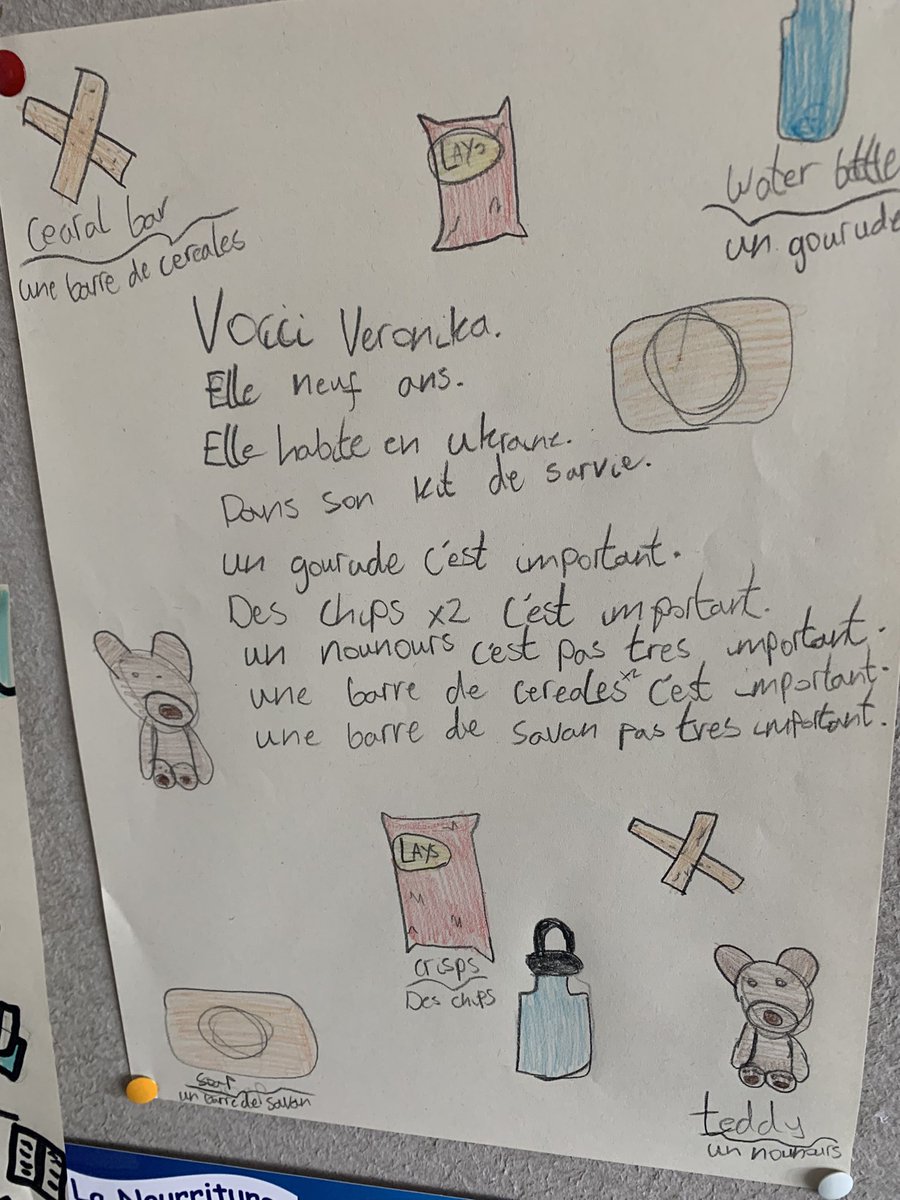 LAYS
Water bottle
un gourude
cearal bar
une barre de cereales
Voici Veronika.
Elle neuf ans.
Elle habite en ukraine.
Dans son kit de sarvie.
un gourude c'est important.
Des chips x2 c'est important.
un nounours c'est pas tres important.
une barre de cereales x2 c'est important.
une barre de savan pas tres important.
LAYS
crisps
Des chips
soap
un barre de savan
teddy
un nounours
La Nourriture